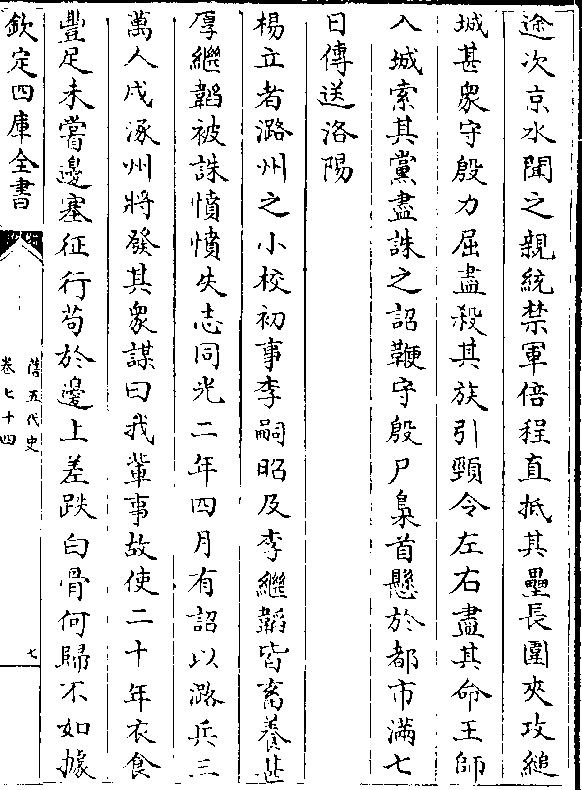 途次京水聞之親統禁軍倍程直抵其壘長圍夾攻縋
城甚衆守殷力屈盡殺其族引頸令左右盡其命王師
入城索其黨盡誅之詔鞭守殷尸梟首懸於都市滿七
日傳送洛陽
楊立者潞州之小校初事李嗣昭及李繼韜皆畜養甚
厚繼韜被誅憤憤失志同光二年四月有詔以潞兵三
萬人戍涿州將發其衆謀曰我輩事故使二十年衣食
豐足未嘗邊塞征行苟於邊上差跌白骨何歸不如據
欽定四庫全書
舊五代史
卷七十四
七